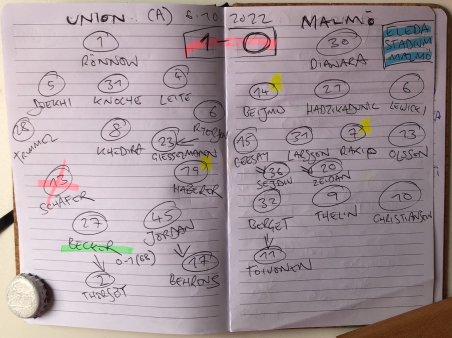 UNION (A) 6.10.2022 MALMÖ
1
RÖNNOW
1-0
5 31 4
DOEKHI KNOCHE LEITE
28 8 23 6
TRIMMEL KHEDIRA GIESSELMANN RYERSON
13 19
SCHÄFER HABERER
27 45
BECKER JORDAN
0-1 (68)
2 17
THORSBY BEHRENS
30
DIAWARA
ELEDA
STADIUM
MALMÖ
14 21 6
BEIJMO HADZIKADUNIC LEWICKI
15 31 7 13
CEESAY LARSSON RAKIP OLSSON
36 20
SEJDIU ZEIDAN
32 9 10
BERGET THELIN CHRISTIANSEN
11
TOIVONEN